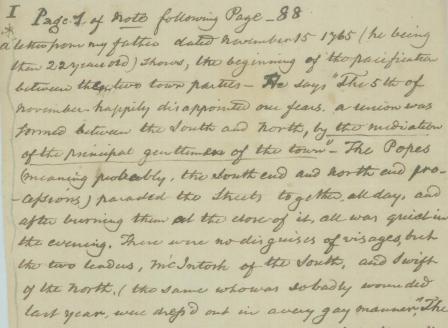 I Page 1 of note following Page - 88
* a letter from my father dated November 15 1765 (he being
then 22 years old) shows, the beginning of the pacification
between the two town parties - He says "The 5th of
november happily disappointed our fears. a union was
formed between the South and North, by the mediation
of the principal gentlemen of the town" - The Popes
(meaning probably, the South end and north end pro-
cessions) paraded the Streets together, all day, and
after burning them at the close of it, all was quiet in
the evening. There were no disguises of visages, but
the two leaders, McIntosh of the South, and Swift
of the North, (the same who was so badly wounded
last year, were dress'd out in a very gay manner." The